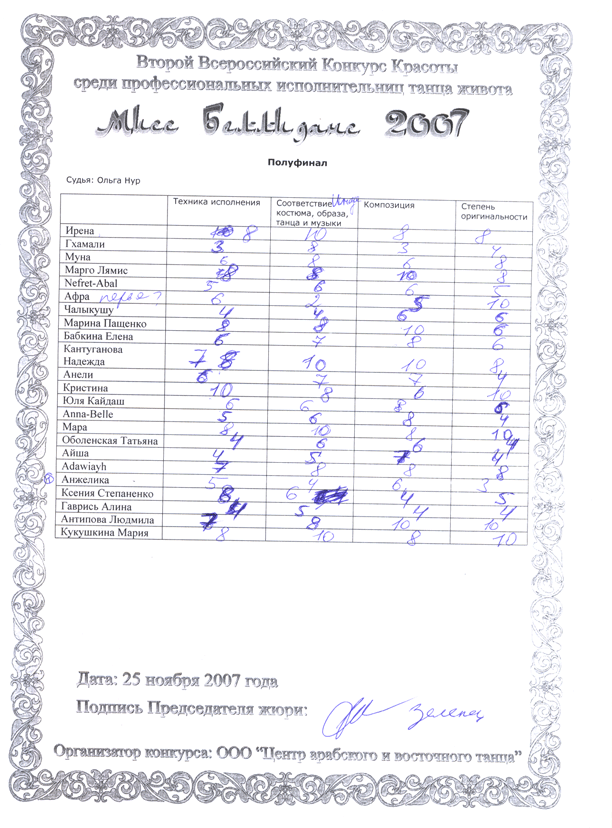 Второй Всероссийский Конкурс Красоты
среди профессиональных исполнительниц танца живота
Мисс Беллиданс 2007
Полуфинал
Судья: Ольга Нур
Техника исполнения Соответствие костюма, образа, танца и музыки Композиция Степень оригинальности
Ирена 8 10 8 8
Гхамали 3 8 3 4
Муна 6 8 6 8
Марго Лямис 8 8 10 8
Nefret-Abal 5 6 6 5
Афра 6 2 5 10
Чалыкушу 4 4 6 6
Марина Пащенко 8 8 10 6
Бабкина Елена 6 7 8 6
Кантуганова
Надежда 7 8 10 10 8
Анели 6 7 7 4
Кристина 10 8 6 10
Юля Кайдаш 6 6 8 6
Anna-Belle 5 6 8 4
Мара 8 10 8 10
Оболенская Татьяна 4 6 6 4
Айша 4 5 7 4
Adawiayh 7 8 8 8
Анжелика 5 4 6 3
Ксения Степаненко 8 6 4 5
Гаврись Алина 4 5 4 4
Антипова Людмила 7 8 10 10
Кукушкина Мария 8 10 8 10
Дата: 25 ноября 2007 года
Подпись Председателя жюри:
Организатор конкурса: ООО "Центр арабского и восточного танца"